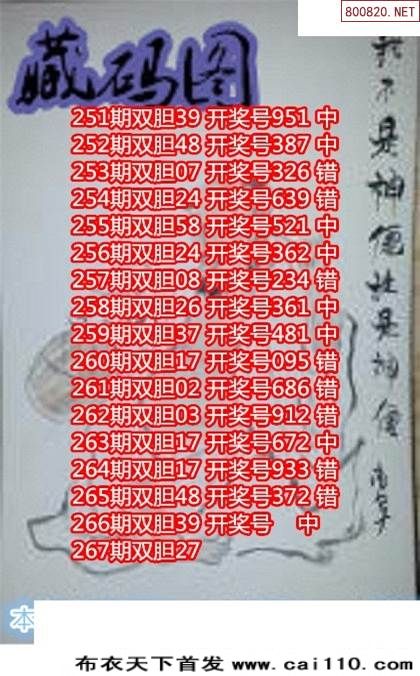 800820.NET
藏码图
251期双胆39 开奖号951 中
252期双胆48 开奖号387 中
253期双胆07 开奖号326 错
254期双胆24 开奖号639 错
255期双胆58 开奖号521 中
256期双胆24 开奖号362 中
257期双胆08 开奖号234 错
258期双胆26 开奖号361 中
259期双胆37 开奖号481 中
260期双胆17 开奖号095 错
261期双胆02 开奖号686 错
262期双胆03 开奖号912 错
263期双胆17 开奖号672 中
264期双胆17 开奖号933 错
265期双胆48 开奖号372 错
266期双胆39 开奖号 中
267期双胆27
我不是神仙胜是神仙
本
布衣天下首发 www.cai110.com